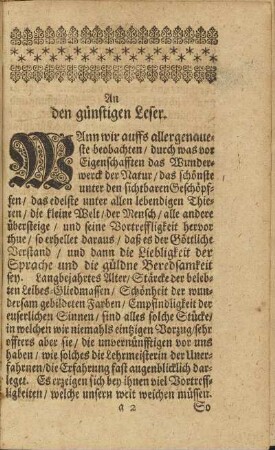 An
den günstigen Leser.
WAnn wir auffs allergenaue-
ste beobachten / durch was vor
Eigenschafften das Wunder-
werck der Natur / das schönste
unter den sichtbaren Geschöpf-
fen / das edelste unter allen lebendigen Thie-
ren / die kleine Welt / der Mensch / alle andere
übersteige / und seine Vortreffligkeit hervor
thue / so erhellet daraus / daß es der Göttliche
Verstand / und dann die Liebligkeit der
Sprache und die güldne Beredsamkeit
sey. Langbejahrtes Alter / Stärcke der beleib-
ten Leibes-Gliedmassen / Schönheit der wun-
dersam gebildeten Farben / Empfindligkeit der
euserlichen Sinnen / sind alles solche Stücke /
in welchen wir niemahls eintzigen Vorzug / sehr
offters aber sie / die unvernünfftigen vor uns
haben / wie solches die Lehrmeisterin der Uner-
fahrnen / die Erfahrung fast augenblicklich dar-
leget. Es erzeigen sich bey ihnen viel Vortreff-
ligkeiten / welche unsern weit weichen müssen.
a 2 So